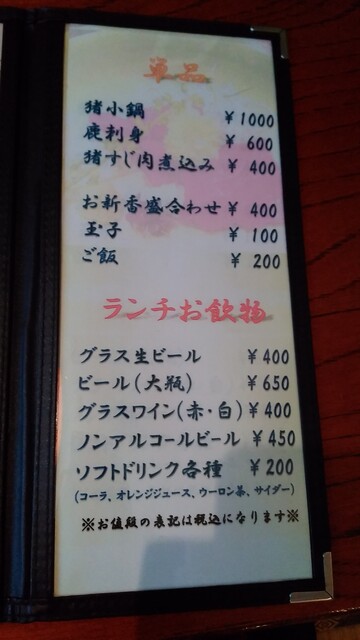 単品
猪小鍋 ¥1000
鹿刺身 ¥600
猪すじ肉煮込み ¥400
お新香盛合わせ ¥400
玉子 ¥100
ご飯 ¥200
ランチお飲物
グラス生ビール ¥400
ビール(大瓶) ¥650
グラスワイン(赤・白) ¥400
ノンアルコールビール ¥450
ソフトドリンク各種 ¥200
(コーラ、オレンジジュース、ウーロン茶、サイダー)
※お値段の表記は税込になります※